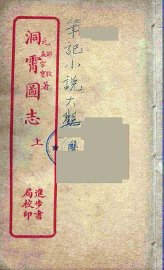 筆記小說大觀
元鄧牧
孟宗寶著
洞霄圖志
上
進步書
局校印